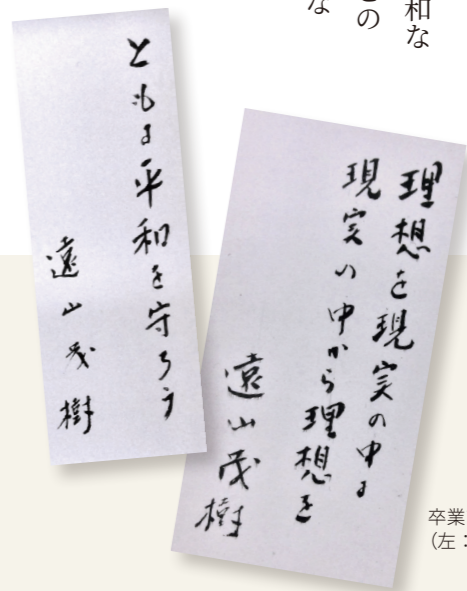 和な
の
な
理想を現実の中に
現実の中から理想を
遠山茂樹
ともに平和を守ろう
遠山茂樹
卒業
（左：